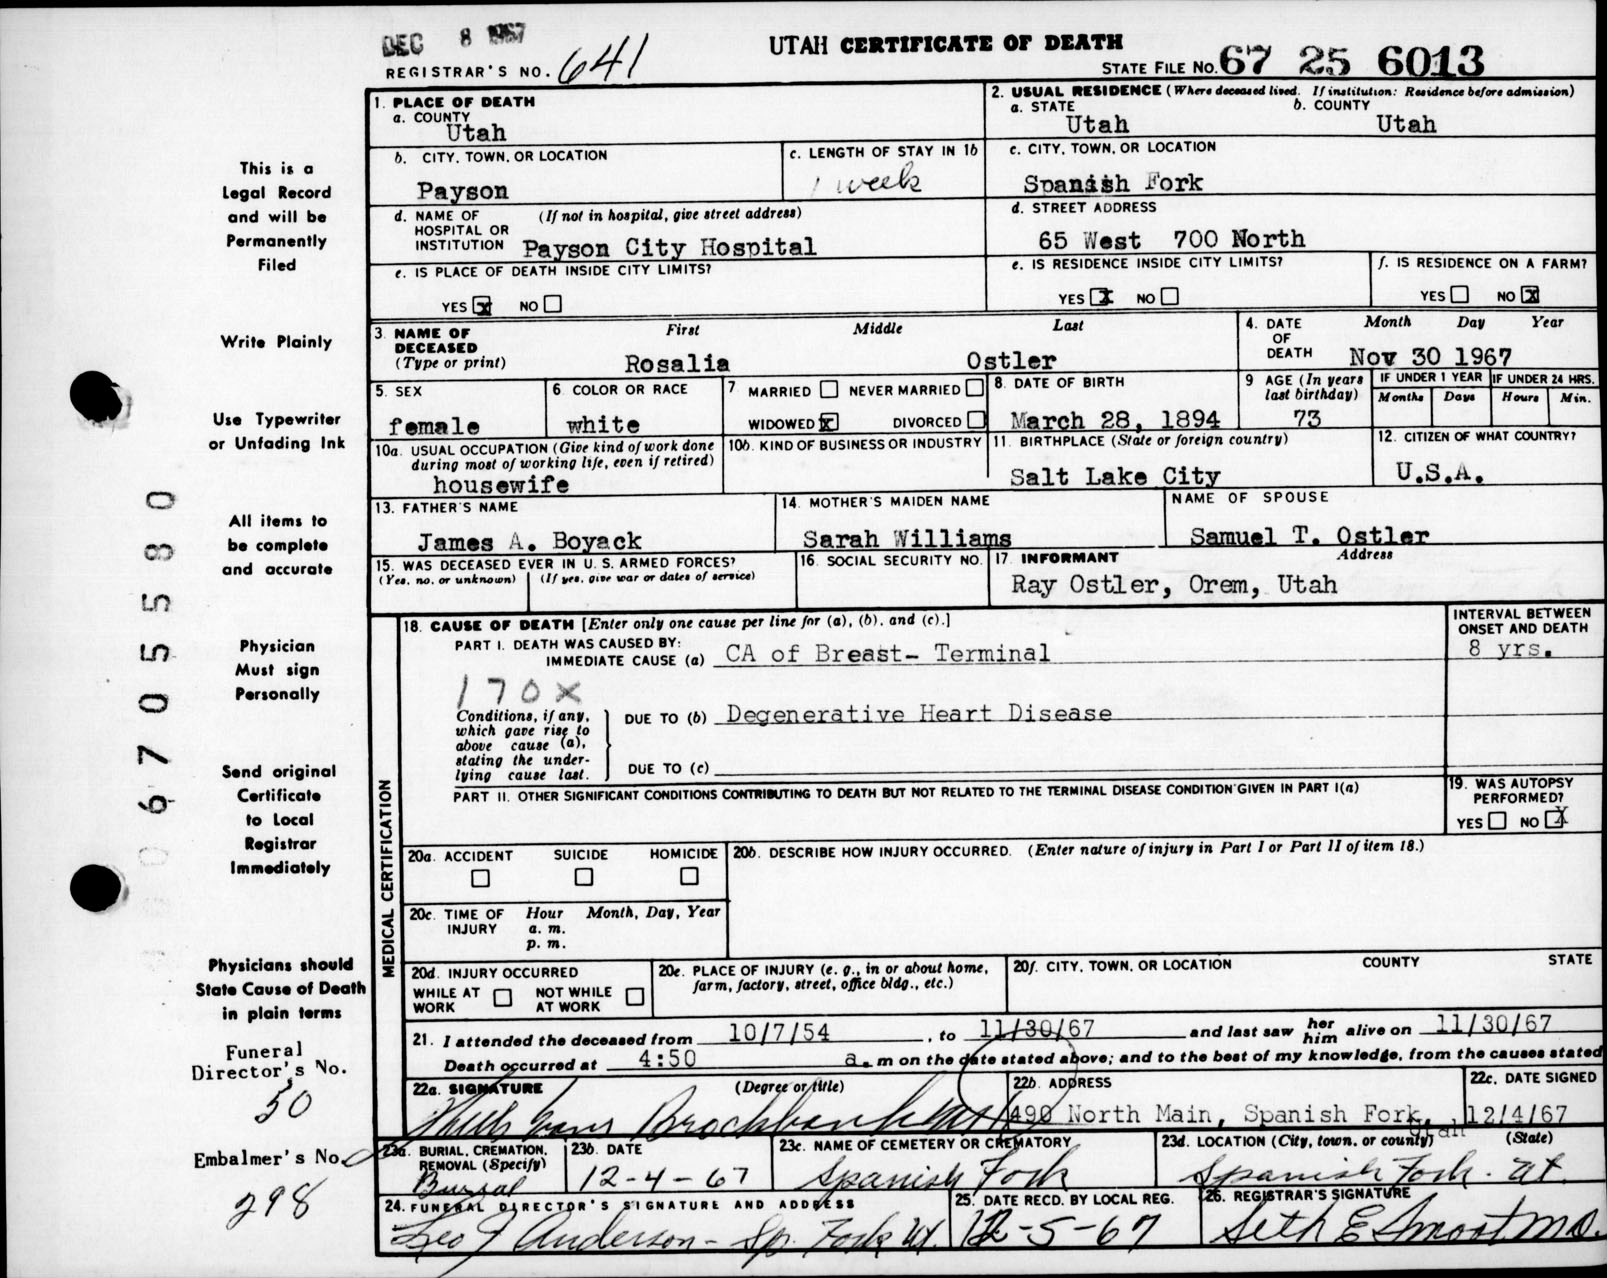 DEC 8 1967
UTAH CERTIFICATE OF DEATH
REGISTRAR'S NO. 641
STATE FILE NO. 67 25 6013
This is a
Legal Record
and will be
Permanently
Filed
Write Plainly
Use Typewriter
or Unfading Ink
All items to
be complete
and accurate
Physician
Must sign
Personally
Send original
Certificate
to Local
Registrar
Immediately
Physicians should
State Cause of Death
in plain terms
Funeral
Director's No.
50
Embalmer's No.
298
0670 5580
1. PLACE OF DEATH
a. COUNTY
Utah
2. USUAL RESIDENCE (Where deceased lived. If institution: Residence before admission)
a. STATE b. COUNTY
Utah Utah
b. CITY, TOWN, OR LOCATION
Payson
c. LENGTH OF STAY IN 1b
1 week
c. CITY, TOWN, OR LOCATION
Spanish Fork
d. NAME OF (If not in hospital, give street address)
HOSPITAL OR
INSTITUTION Payson City Hospital
d. STREET ADDRESS
65 West 700 North
e. IS PLACE OF DEATH INSIDE CITY LIMITS?
YES X NO
e. IS RESIDENCE INSIDE CITY LIMITS?
YES X NO
f. IS RESIDENCE ON A FARM?
YES NO X
3. NAME OF First Middle Last
DECEASED
(Type or print) Rosalia Ostler
4. DATE Month Day Year
OF
DEATH Nov 30 1967
5. SEX
female
6. COLOR OR RACE
white
7. MARRIED NEVER MARRIED
WIDOWED X DIVORCED
8. DATE OF BIRTH
March 28, 1894
9 AGE (In years
last birthday)
73
IF UNDER 1 YEAR IF UNDER 24 HRS.
Months Days Hours Min.
10a. USUAL OCCUPATION (Give kind of work done
during most of working life, even if retired)
housewife
10b. KIND OF BUSINESS OR INDUSTRY
11. BIRTHPLACE (State or foreign country)
Salt Lake City
12. CITIZEN OF WHAT COUNTRY?
U.S.A.
13. FATHER'S NAME
James A. Boyack
14. MOTHER'S MAIDEN NAME
Sarah Williams
NAME OF SPOUSE
Samuel T. Ostler
15. WAS DECEASED EVER IN U. S. ARMED FORCES?
(Yes, no, or unknown) (If yes, give war or dates of service)
16. SOCIAL SECURITY NO.
17. INFORMANT Address
Ray Ostler, Orem, Utah
MEDICAL CERTIFICATION
18. CAUSE OF DEATH [Enter only one cause per line for (a), (b), and (c).]
INTERVAL BETWEEN
ONSET AND DEATH
PART I. DEATH WAS CAUSED BY:
IMMEDIATE CAUSE (a) CA of Breast- Terminal 8 yrs.
170X
Conditions, if any,
which gave rise to
above cause (a),
stating the under-
lying cause last.
DUE TO (b) Degenerative Heart Disease
DUE TO (c)
PART II. OTHER SIGNIFICANT CONDITIONS CONTRIBUTING TO DEATH BUT NOT RELATED TO THE TERMINAL DISEASE CONDITION GIVEN IN PART I(a)
19. WAS AUTOPSY
PERFORMED?
YES NO X
20a. ACCIDENT SUICIDE HOMICIDE
20b. DESCRIBE HOW INJURY OCCURRED. (Enter nature of injury in Part I or Part II of item 18.)
20c. TIME OF Hour Month, Day, Year
INJURY a. m.
p. m.
20d. INJURY OCCURRED
WHILE AT NOT WHILE
WORK AT WORK
20e. PLACE OF INJURY (e. g., in or about home,
farm, factory, street, office bldg., etc.)
20f. CITY, TOWN, OR LOCATION COUNTY STATE
21. I attended the deceased from 10/7/54, to 11/30/67 and last saw her him alive on 11/30/67
Death occurred at 4:50 a. m on the date stated above; and to the best of my knowledge, from the causes stated
22a. SIGNATURE (Degree or title)
Brockbank
22b. ADDRESS
490 North Main, Spanish Fork, Utah
22c. DATE SIGNED
12/4/67
23a. BURIAL, CREMATION,
REMOVAL (Specify)
Burial
23b. DATE
12-4-67
23c. NAME OF CEMETERY OR CREMATORY
Spanish Fork
23d. LOCATION (City, town, or county) (State)
Spanish Fork. Ut.
24. FUNERAL DIRECTOR'S SIGNATURE AND ADDRESS
Leo J Anderson - Sp. Fork Ut.
25. DATE RECD. BY LOCAL REG.
12-5-67
26. REGISTRAR'S SIGNATURE
Seth E Smoot M.D.